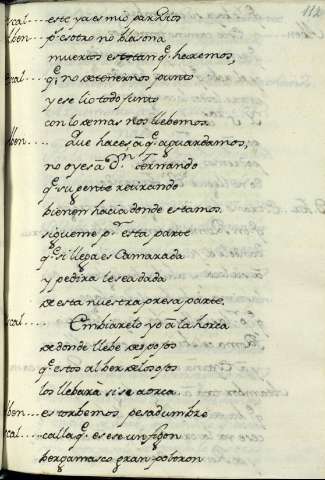 112
scal.... este ya es mio par Dios
lben.... pr. esotro no blasona
muertos estotan q. haremos,
scal.... q. no detenernos punto
y ese lio todo junto
con lo demas nos llebemos.
lben.... Que haces a q. aguardamos,
no oyes a Dn. Fernando
q. su gente retirando
bienen hacia donde estamos
sigueme pr. esta parte
q. si llega es Camarada
y pedira le sea dada
de esta nuestra presa parte.
scal.... Embiarelo yo a la horca
de donde llebe despojos
q. estos al ber de los ojos
los llebara si se aorca.
lben.... estorbemos pesadumbre
scal.... calla q. es ese un figon
bergamasco gran poltron